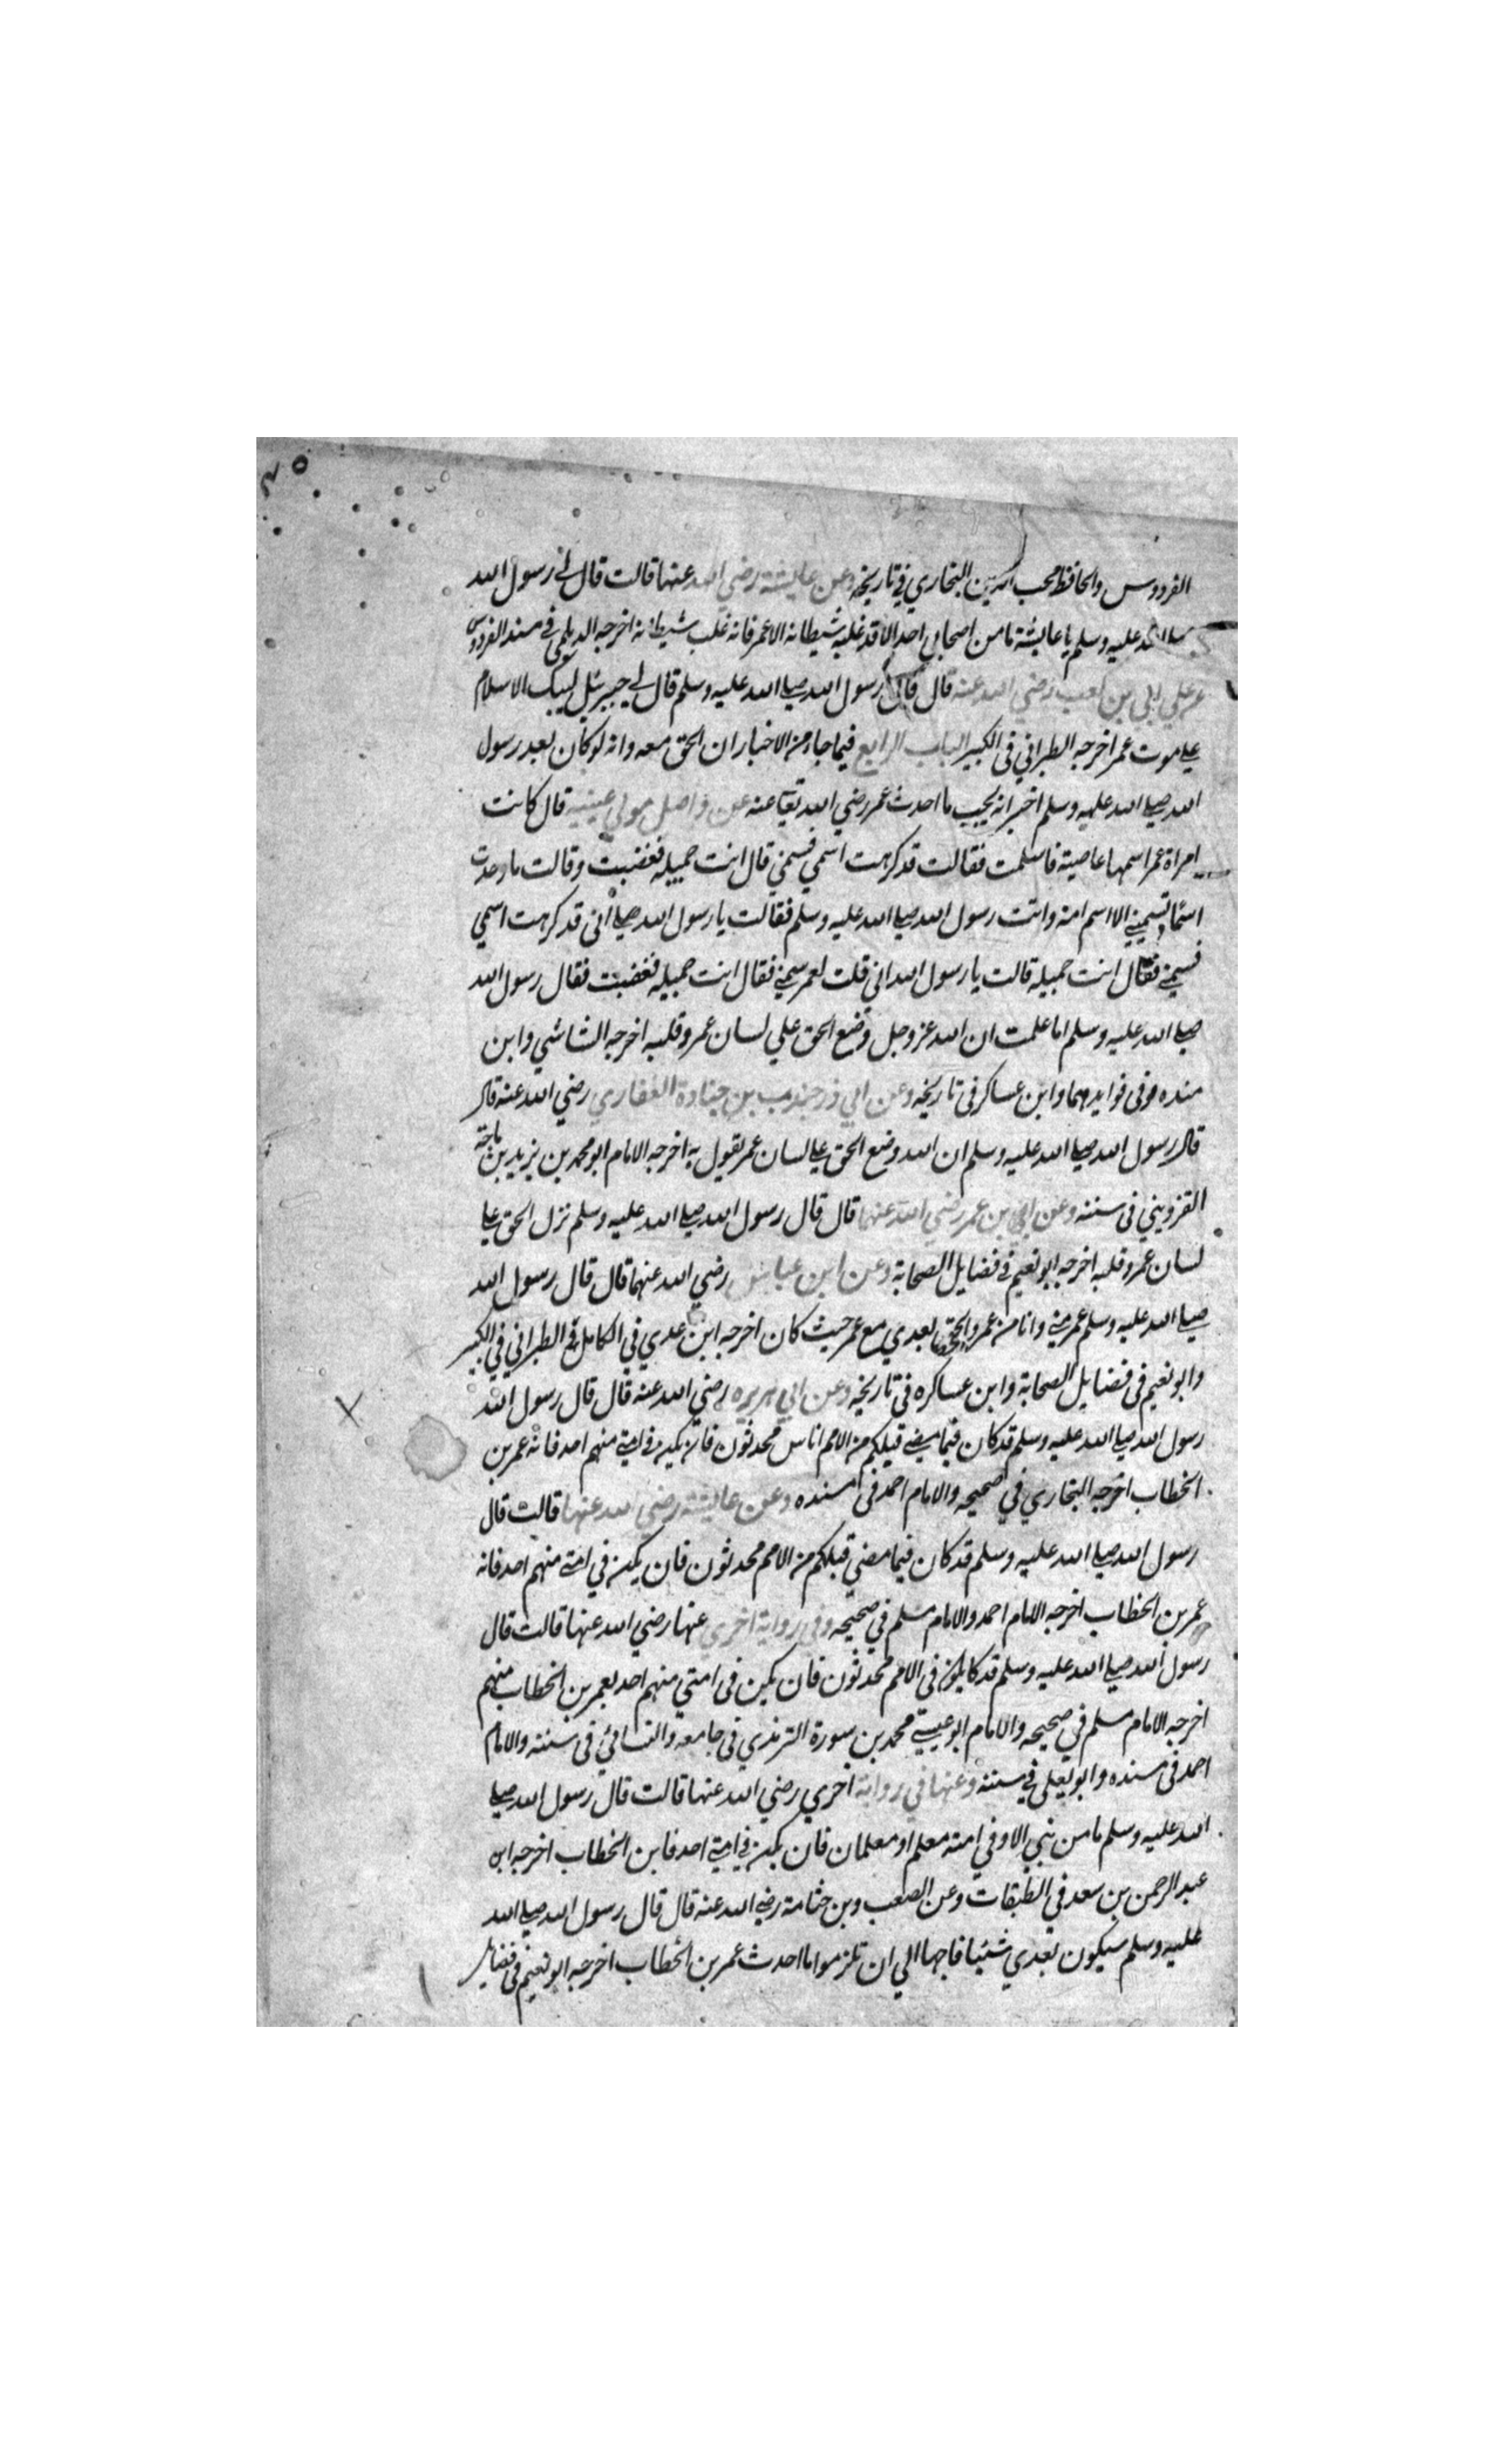 الفردوس والحافظ محب الدين النجاري في تاريخه وعن عايشة رضي الله عنها قالت قال لي رسول الله
صلى الله عليه وسلم يا عايشة ما من اصحابي احد الا قد غلبه شيطانه الا عمر فانه غلب شيطانه اخرجه الديلمي في مسند الفردوس
ابي بن كعب رضي الله عنه قال قال رسول الله صلى الله عليه وسلم قال لي جبريل ليبك الاسلام
على موت عمر اخرجه الطبراني في الكبير الباب الرابع فيما جاء من الاخبار ان الحق معه وانه لو كان بعد رسول
الله صلى الله عليه وسلم اخبر انه يجيب ما احدث عمر رضي الله تعالى عنه عن واصل مولي عيينة قال كانت
امراة عمر اسمها عاصية فاسلمت فقالت قد كرهت اسمي فسمني قال انت جميله فغضبت وقالت ما وجدت
اسما تسميني الا اسم امة واتت رسول الله صلى الله عليه وسلم فقالت يا رسول الله اني قد كرهت اسمي
فسمني فقال انت جميله قالت يا رسول الله اني قلت لعمر سمني فقال انت جميله فغضبت فقال رسول الله
صلى الله عليه وسلم اما علمت ان الله عز وجل وضع الحق علي لسان عمر وقلبه اخرجه الشاشي وابن
منده في فوايدهما وابن عساكر في تاريخه وعن ابي ذر جندب بن جنادة الغفاري رضي الله عنه قال
قال رسول الله صلى الله عليه وسلم ان الله وضع الحق على لسان عمر يقول به اخرجه الامام ابو محمد بن يزيد بن ماجة
القزويني في سننه وعن ابن عمر رضي الله عنهما قال قال رسول الله صلى الله عليه وسلم نزل الحق على
لسان عمر وقلبه اخرجه ابو نعيم في فضايل الصحابة وعن ابن عباس رضي الله عنهما قال قال رسول الله
صلى الله عليه وسلم عمر مني وانا من عمر والحق بعدي مع عمر حيث كان اخرجه ابن عدي في الكامل الطبراني في الكبير
وابو نعيم في فضايل الصحابة وابن عساكره في تاريخه وعن ابي هريره رضي الله عنه قال قال رسول الله
رسول الله صلى الله عليه وسلم قد كان فيما مضى قبلكم من الامم اناس محدثون فان يكن في امتي منهم احد فانه عمر بن
الخطاب اخرجه البخاري في صحيحه والامام احمد في مسنده وعن عايشة رضي الله عنها قالت قال
رسول الله صلى الله عليه وسلم قد كان فيما مضي قبلكم من الامم محدثون فان يكن في امتي منهم احد فانه
عمر بن الخطاب اخرجه الامام احمد والامام مسلم في صحيحه وفي رواية اخري عنها رضي الله عنها قالت قال
رسول الله صلى الله عليه وسلم قد كان يكون في الامم محدثون فان يكن في امتي منهم احد لعمر بن الخطاب منهم
اخرجه الامام مسلم في صحيحه والامام ابو عيسى محمد بن سورة الترمذي في جامعه والنسائي في سننه والامام
احمد في مسنده وابو يعلى في سننه وعنها في رواية اخري رضي الله عنها قالت قال رسول الله صلى
الله عليه وسلم ما من نبي الا وفي امته معلم او معلمان فان يكن في امتي احد فابن الخطاب اخرجه ابن
عبد الرحمن بن سعد في الطبقات وعن الصعب وبن جثامة رضي الله عنه قال قال رسول الله صلى الله
عليه وسلم سيكون بعدي شئيا فاجها الي ان تلزموا ما احدث عمر بن الخطاب اخرجه ابو نعيم في فضايل